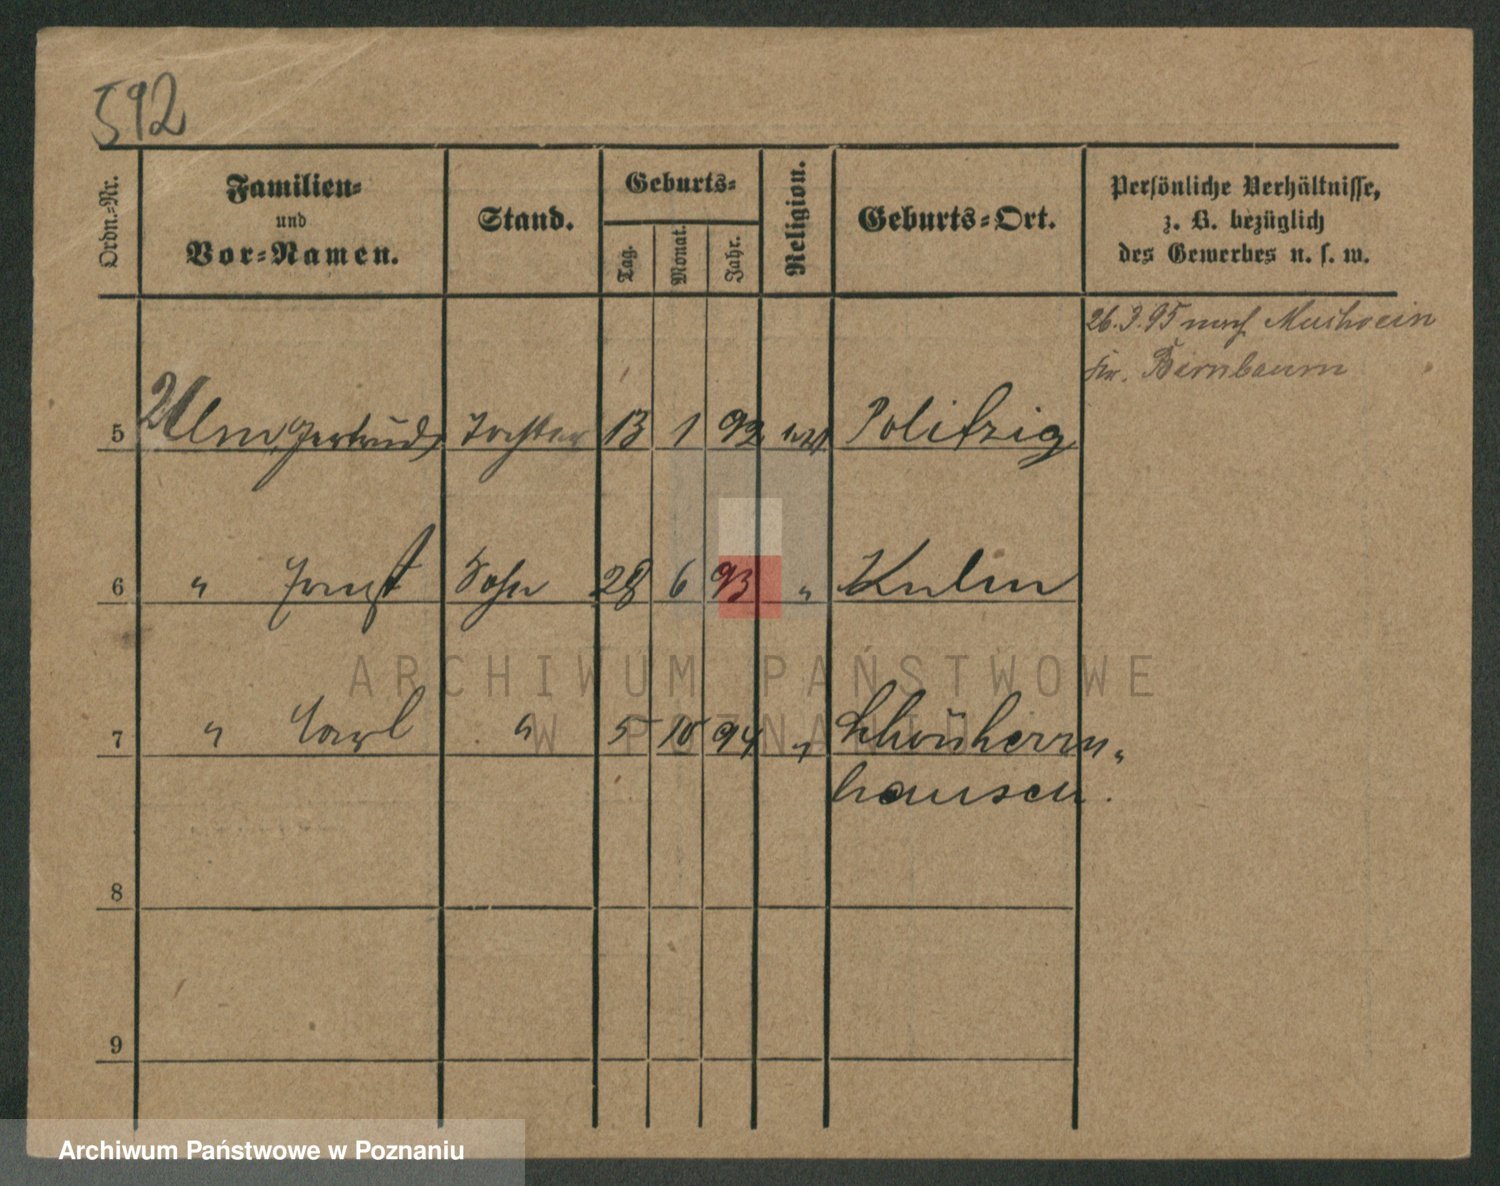 592
Ordn.-Nr.
Familien-
und
Vor-Namen.
Stand.
Geburts-
Tag.
Monat.
Jahr.
Religion.
Geburts-Ort.
Persönliche Verhältnisse,
z. B. bezüglich
des Gewerbes u. s. w.
26.3.95 nach
Kr. Birnbaum
5 Ulm, Gertrud Tochter 13 1 92 Politzig
6 " Ernst Sohn 28 6 93 " Kulm
7 " Carl " 5 10 94 " Schönherrn-
hausen.
8
9
ARCHIWUM PAŃSTWOWE
W POZNANIU
Archiwum Państwowe w Poznaniu